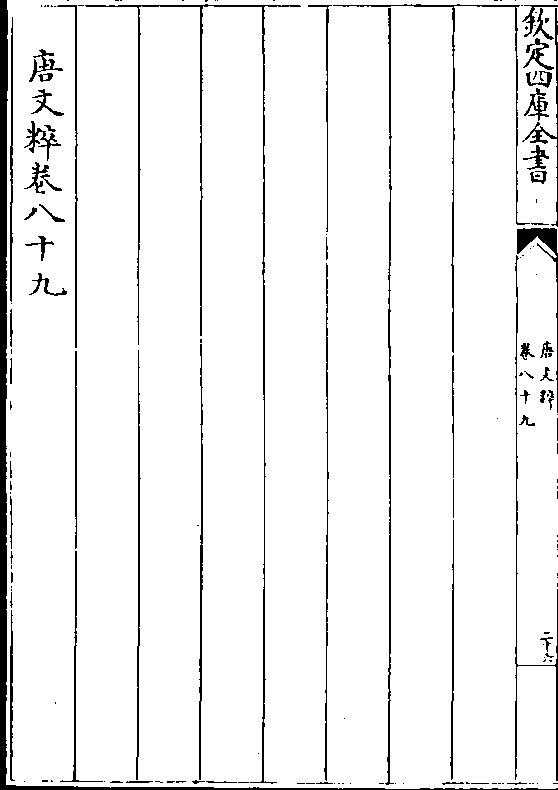 欽定四庫全書
唐文粹
卷八十九
二十六
唐文粹卷八十九